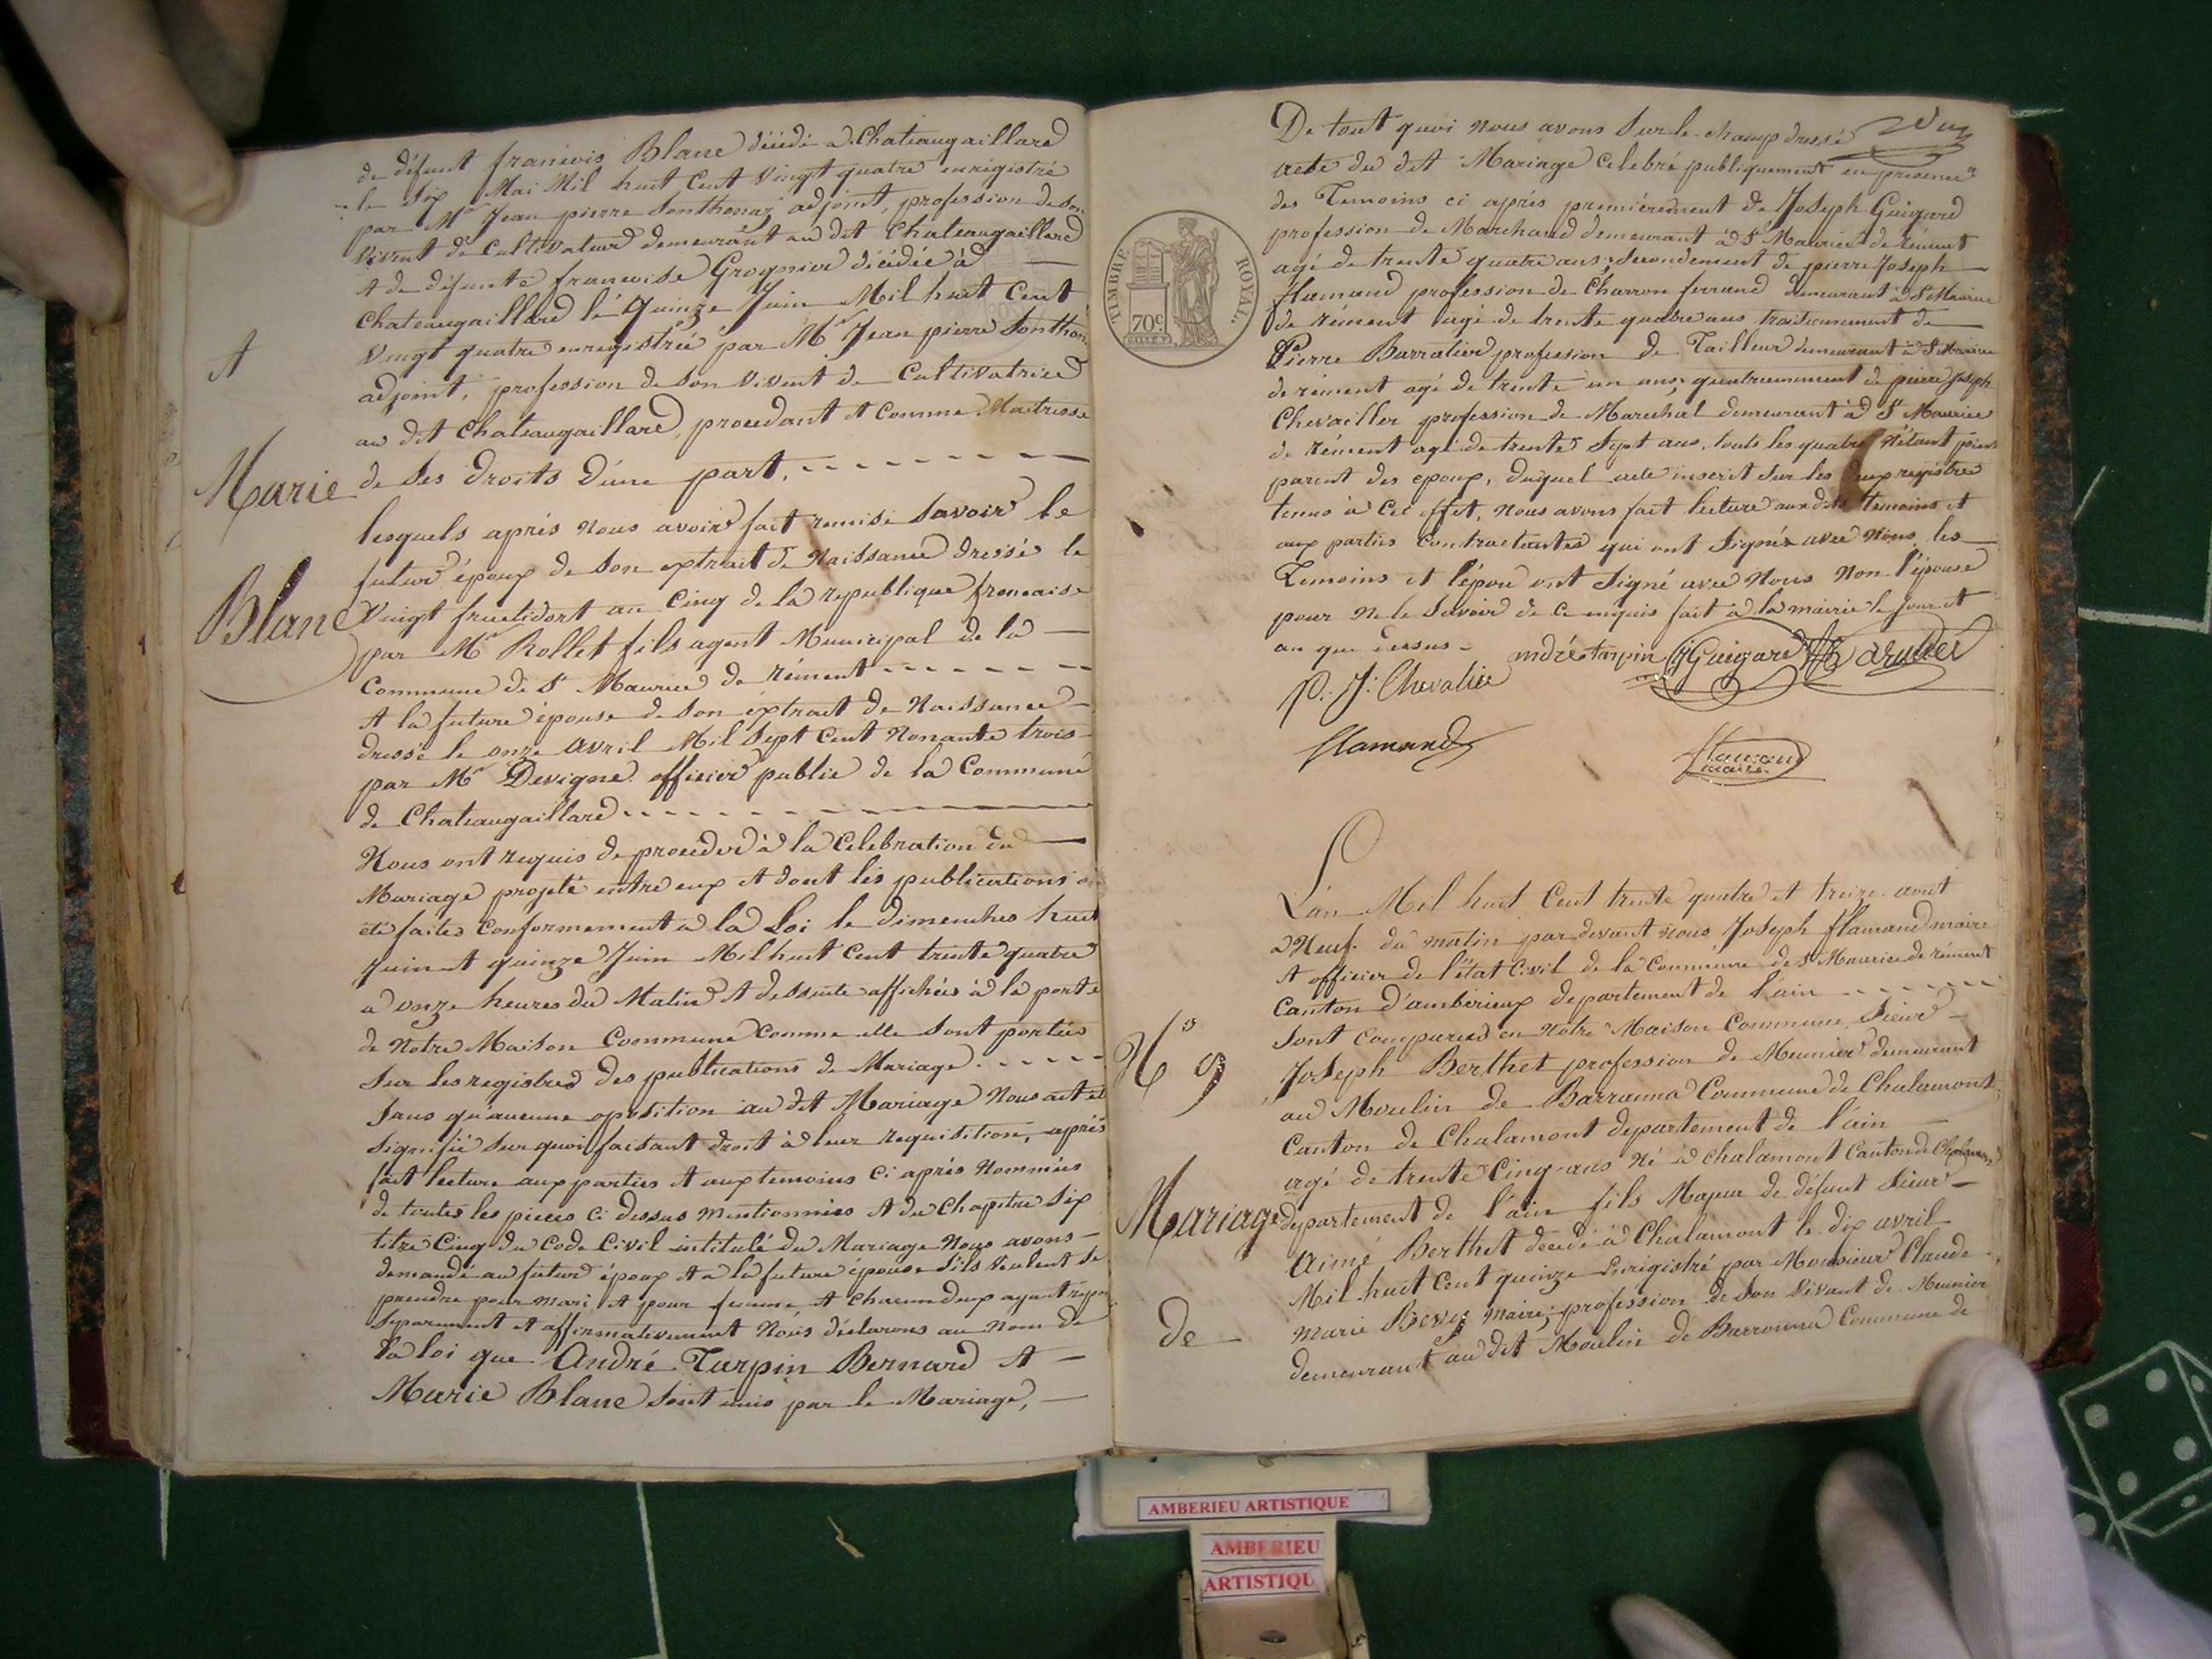 de défunt francois Blanc décédé a Chateaugaillard
le Six Mai Mil huit Cent Vingt quatre enregistré
par Mr Jean pierre Sonthonaz adjoint, profession de son
vivent de Cultivateur demeurant au dit Chateaugaillard
et de défunte francoise Grognier décédée à
Chateaugaillard le quinze Juin Mil huit Cent
Vingt quatre enregistrée par Mr Jean pierre Sonthon
adjoint, profession de son vivent de Cultivatrice
au dit Chateaugaillard, procedant et comme Maitresse
de ses droits d'une part.
lesquels après nous avoir fait remise savoir le
futur époux de son extrait de Naissance dressé le
Vingt fructidort an Cinq de la republique francaise
par Mr Rollet fils agent Municipal de la
Commune de St Maurice de rément
et la future épouse de son éxtrait de Naissance
dressé le onze avril Mil Sept Cent Nonante trois
par Mr Devigne officier public de la Commune
de Chateaugaillard
Nous ont requis de proceder à la Celebration du
Mariage projeté entre eux et dont les publications
été faites conformement a la Loi le dimenches huit
Juin et quinze Juin Mil huit Cent trente quatre
a onze heures du Matin et de suite affichées à la porte
de Notre Maison Commune Comme elle sont portées
sur les registres des publications de Mariage
sans qu'aucune oposition au dit Mariage Nous ait été
signifié sur quoi faisant droit à leur requisition, après
fait lecture aux parties et aux temoins ci après Nommées
de toutes les pieces ci dessus mentionnées et du Chapitre six
titre Cinq du Code Civil intitulé du Mariage Nous avons
demandé au futur époux et a la future épouse s'ils veulent se
prendre pour mari et pour femme et chacun d'eux ayant repon
separement et affirmativement Nous déclarons au Nom de
la loi que André Turpin Bernard et
Marie Blanc sont unis par le Mariage,
et
Marie
Blanc
De tout quoi nous avons sur le champ dressé
acte du dit Mariage celebré publiquement en présence
des Temoins ci après premièrement de Joseph Guigard
profession de Marchand demeurant à St Maurice de rément
agé de trente quatre ans, secondement de pierre Joseph
flamand profession de Charron ferrand demeurant à St Maurice
de rément agé de trente quatre ans troisiemement de
Pierre Barratier profession de Tailleur demeurant à St Maurice
de rément agé de trente un ans, quatriemement de pierre Joseph
Chevallier profession de Marechal demeurant à St Maurice
de rément agé de trente Sept ans, touts les quatre n'étant point
parent des epoux, duquel acte inscrit sur les deux registres
tenus à cet effet, nous avons fait lecture aux dits temoins et
aux parties Contractantes qui ont Signés avec Nous les
Temoins et l'époux ont Signé avec Nous Non l'épouse
pour ne le Savoir de ce enquis fait à la mairie le jour et
an que dessus
andré turpin J Guigard
P: J: Chevalier
flamand
flamand
maire
TIMBRE ROYAL
70c
L'an Mil huit Cent trente quatre et treize aout
a Neuf du matin par devant nous Joseph flamand maire
et officier de l'état civil de la Commune de St Maurice de rément
Canton d'ambérieux departement de l'ain
sont comparus en Notre Maison Commune Sieur
Joseph Berthet profession de Meunier demeurant
au Moulin de Barranna Commune de Chalamont
Canton de Chalamont departement de l'ain
agé de trente Cinq ans né à Chalamont Canton de Chalamont
departement de l'ain fils Majeur de défunt Sieur
Aimé Berthet decedé à Chalamont le dix avril
Mil huit Cent quinze Enregistré par Monsieur Claude
marie maire, profession de son vivant de Meunier
demeurant au dit Moulin de Barronna Commune de
No 9
Mariage
de
AMBERIEU ARTISTIQUE
AMBERIEU
ARTISTIQU